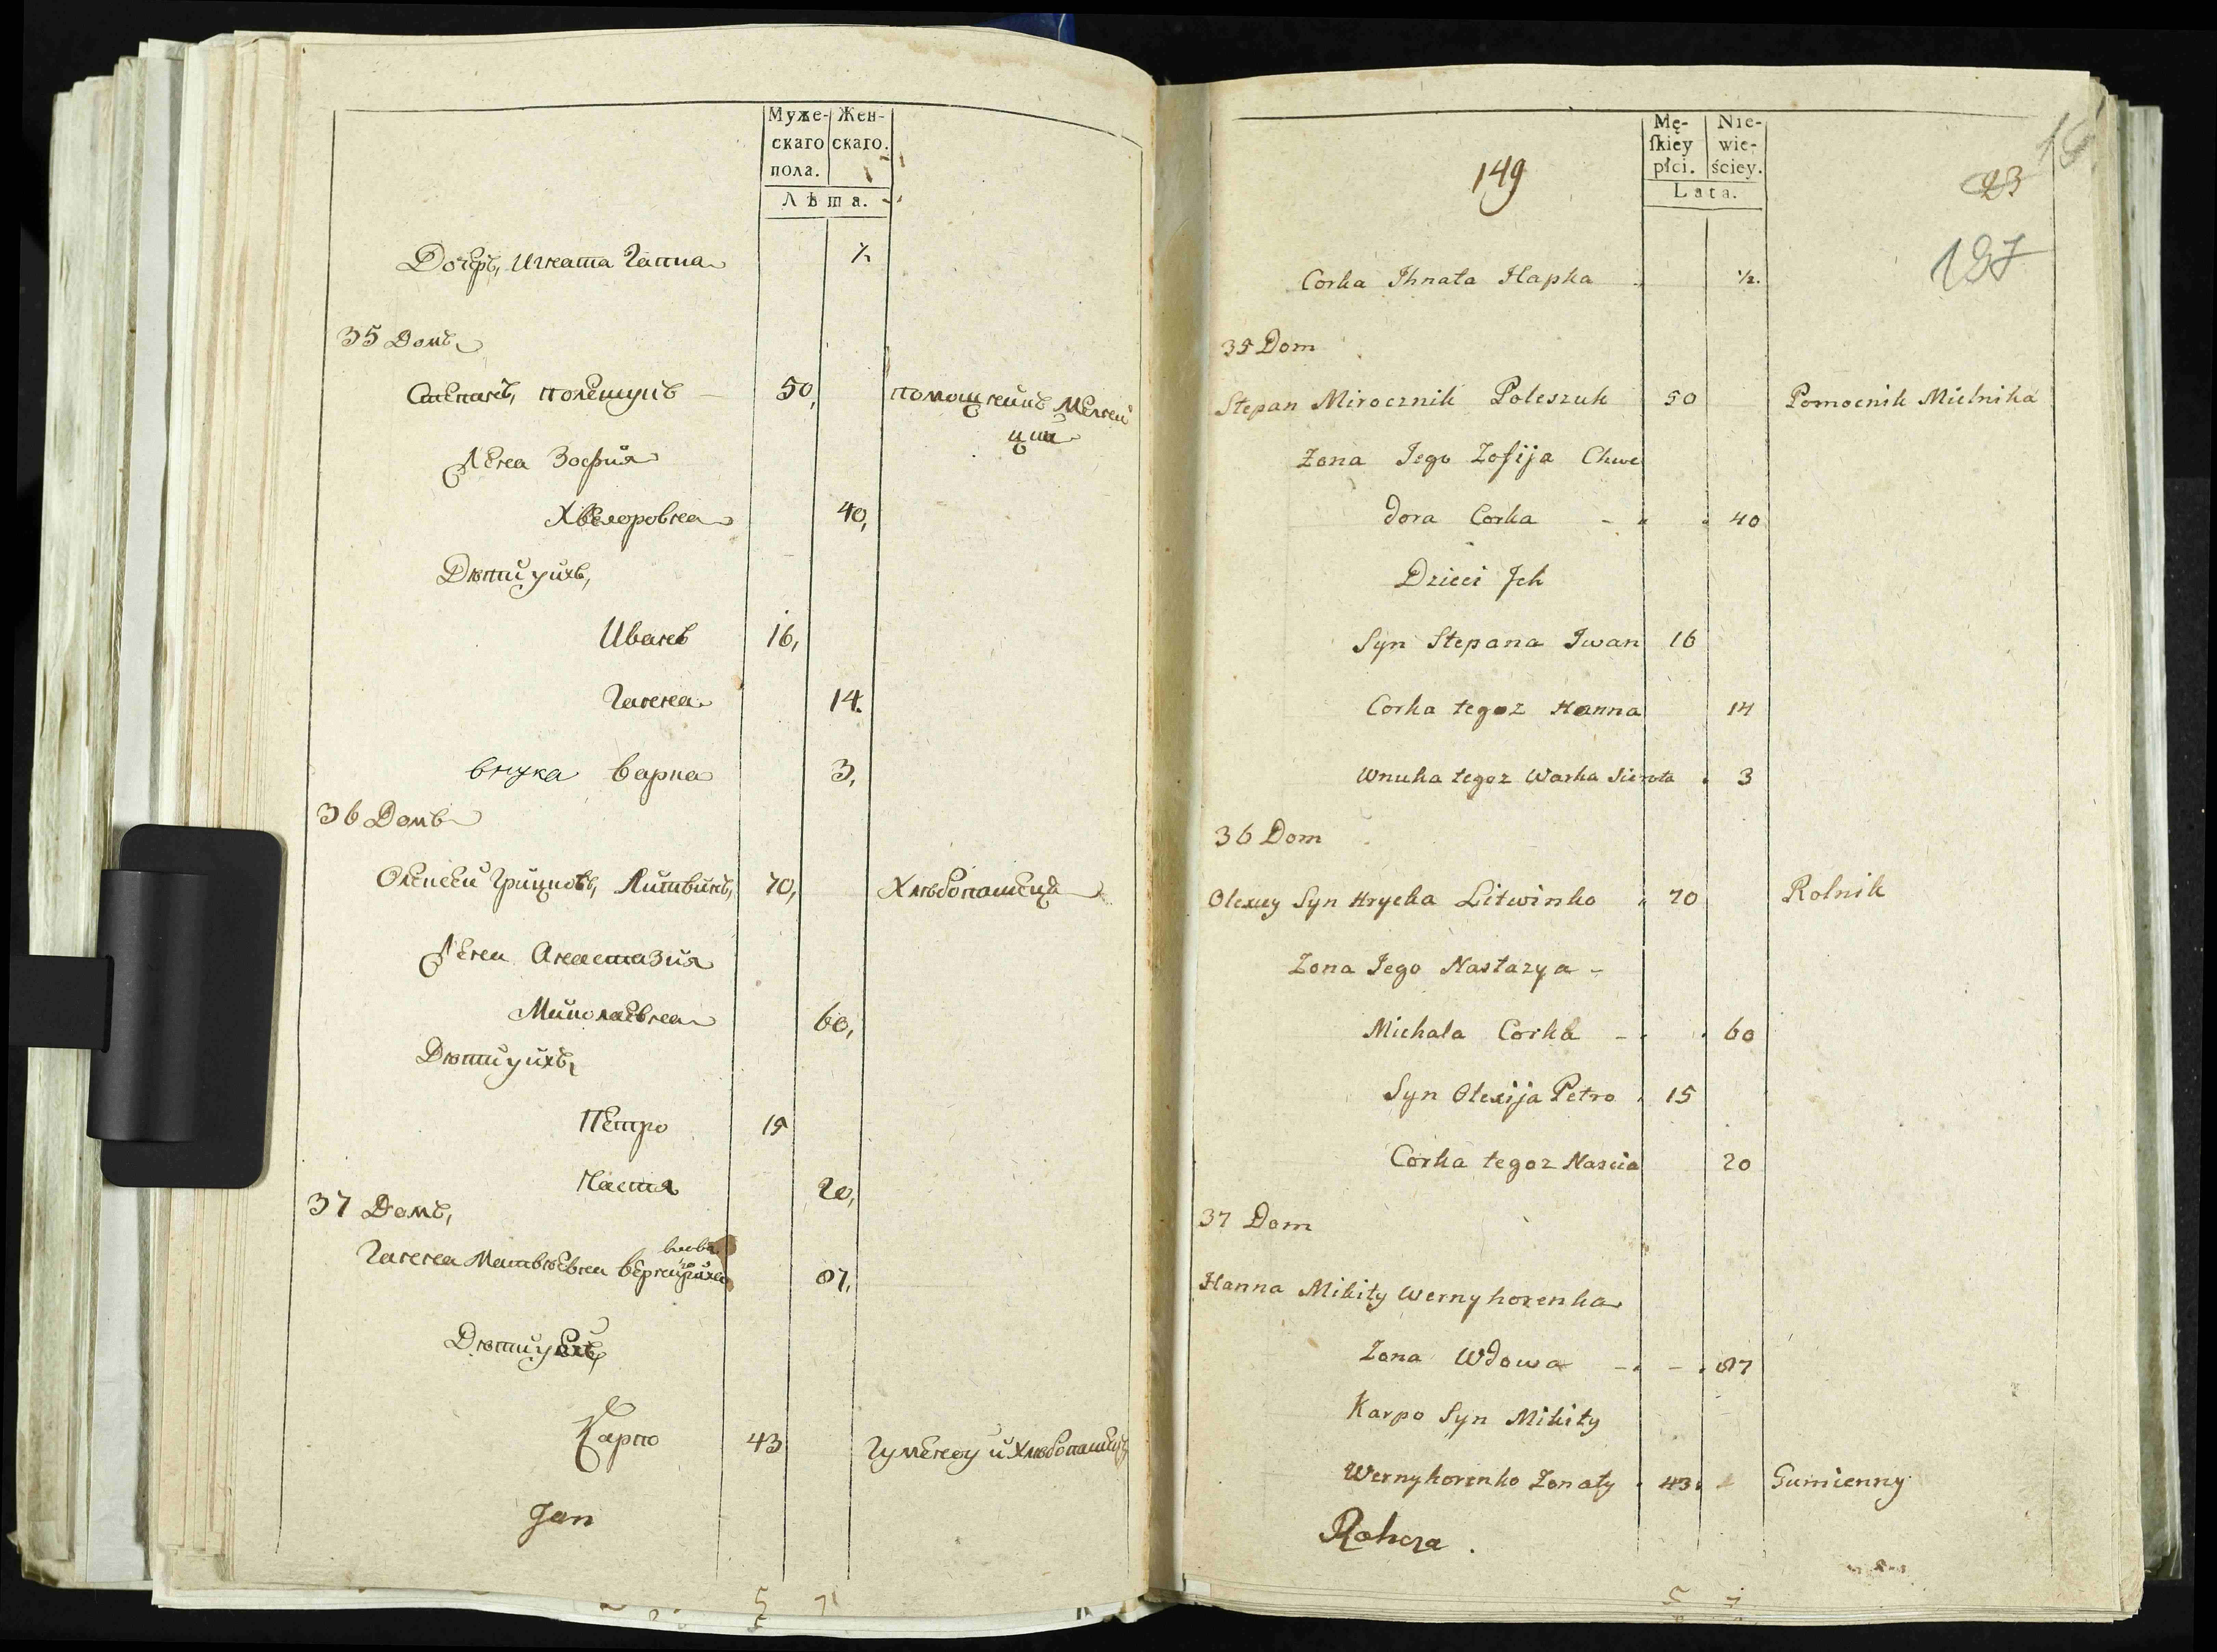 Муже- Жен-
скаго скаго.
пола.
Лѣта.
Дочерь, Игната Гапка ½
35 Домъ
Степанъ, полешукъ 50, помощникъ Мелни
ци
Жена Зофия
Хведоровна 40,
Дѣти ихъ,
Иванъ 16,
Ганна 14.
внука варка 3,
36 Домъ
Олексей Грицковъ, Литвинъ, 70, Хлѣбопашецъ
Жена Анастазия
Миколаевна 60,
Дѣти ихъ,
Петро 15
Настя 20,
37 Домъ,
вдова
Ганна Матвѣевна 87,
Дѣти
Карпо 43 Гуменну и Хлѣбопашецъ
Jan
5 7
149
Mę- Nie-
ſkiey wie-
płci. ściey.
Lata.
23
187
Corka Ihnata Hapka ½.
35 Dom
Stepan Mirocznik Poleszuk 50 Pomocnik Mielnika
Zona Jego Zofija Chwe
dora Corka 40
Dzieci Jch
Syn Stepana Iwan 16
Corka tegoz Hanna 14
Wnuka tegoz Warka Sierota 3
36 Dom
Olexey Syn Hrycka Litwinko 70 Rolnik
Zona Jego Nastazya
Michala Corka 60
Syn Olexija Petro 15
Corka tegoz Nascia 20
37 Dom
Hanna Mikity Wernyhorenka
Zona Wdowa 87
Karpo Syn Mikity
Wernyhorenko Zonaty 43 Gumienny
Rohoza.
5 7